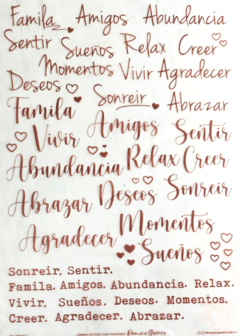 Familia Amigos Abundancia
Sentir Sueños Relax Creer
Momentos Vivir Agradecer
Deseos Sonreir Abrazar
Familia Amigos Sentir
Vivir
Abundancia Relax Creer
Abrazar Deseos Sonreir
Agradecer Momentos
Sueños
Sonreir. Sentir.
Famila. Amigos. Abundancia. Relax.
Vivir. Sueños. Deseos. Momentos.
Creer. Agradecer. Abrazar.